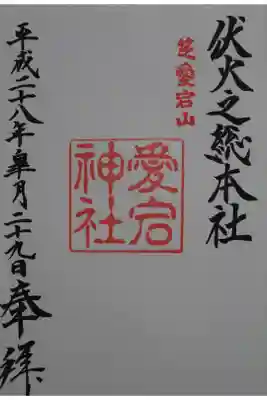 伏火之総本社
芝愛宕山
愛宕
神社
平成二十八年皐月二十九日
奉拝